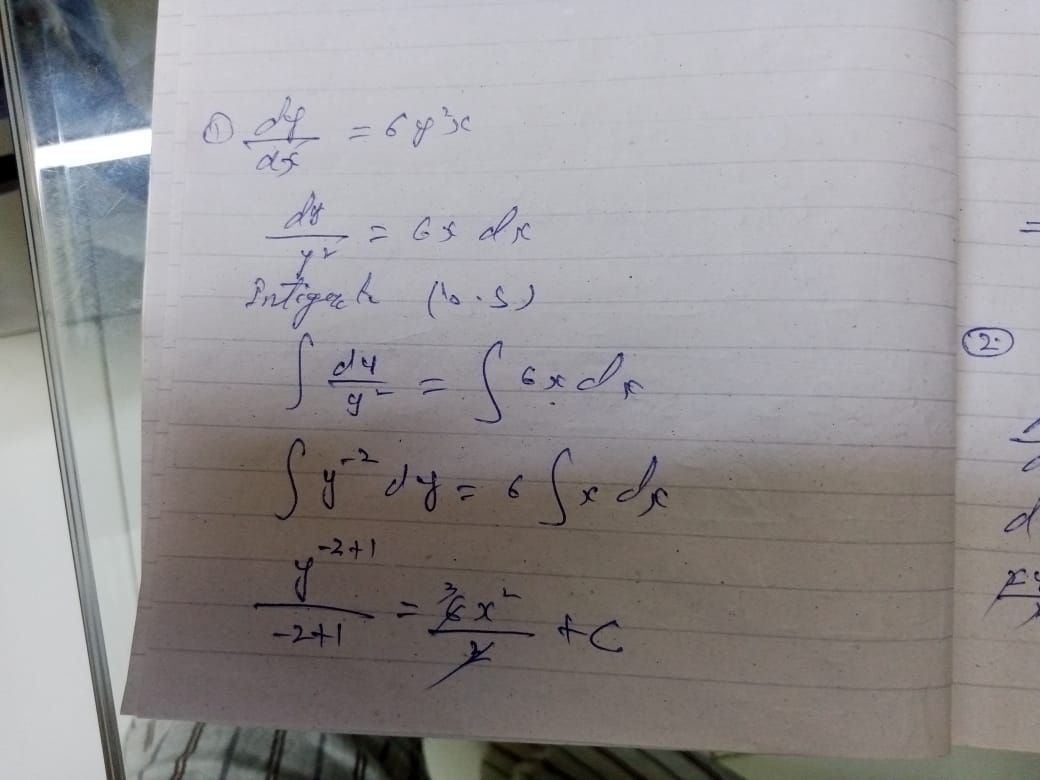 ① dy/dx = 6y²x
dy/y² = 6x dx
Intigrate (b.s)
∫ dy/y² = ∫ 6x dx
∫ y⁻² dy = 6 ∫ x dx
y⁻²⁺¹/-2+1 = ³6x²/2 + C
②